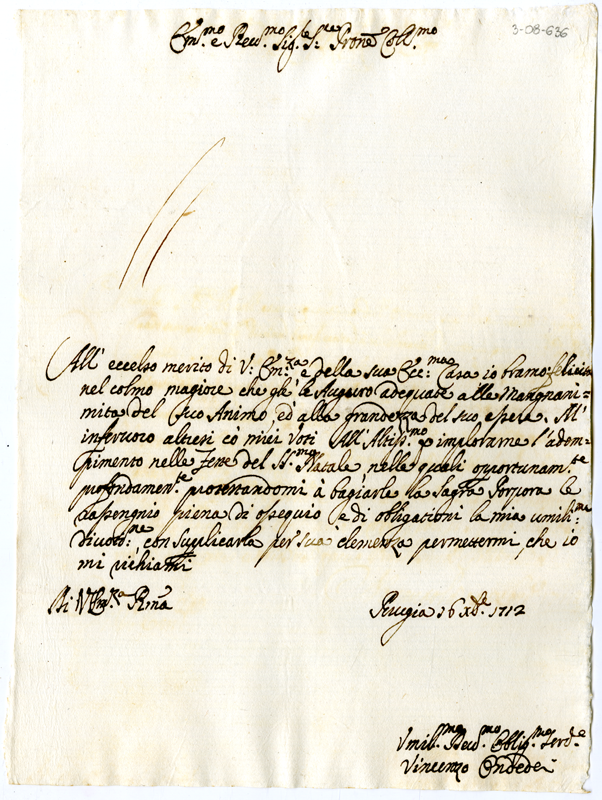 3-08-636
Em.mo e Reu.mo Sig.re S.re Prone Coll.mo
All' eccelso merito di V: Em.za e della sua Ecc:ma Casa io bramo felicità
nel colmo magiore che gl' le Auguro adequate alla Mangnani=
mità del suo Animo, ed alla grandezza del suo essere. M'
infervoro altresi co' miei voti All' Altiss.mo p implorarne l' adem=
pimento nelle Feste del SS.mo Natale nelle quali opportunam.te
profondamen.te protestandomi à bagiarle la Sagra Porpora le
rassengnio piena di ossequio e di obligationi la mia umiliss.ma
divoto:ne con suplicarla per sua clemenza permettermi, che io
mi richiami
Di V Em.za Rma
Perugia 16 Xb.re 1712
Vmil.mo Deu.mo Oblig.mo Serd.e
Vincenzo Ondedei